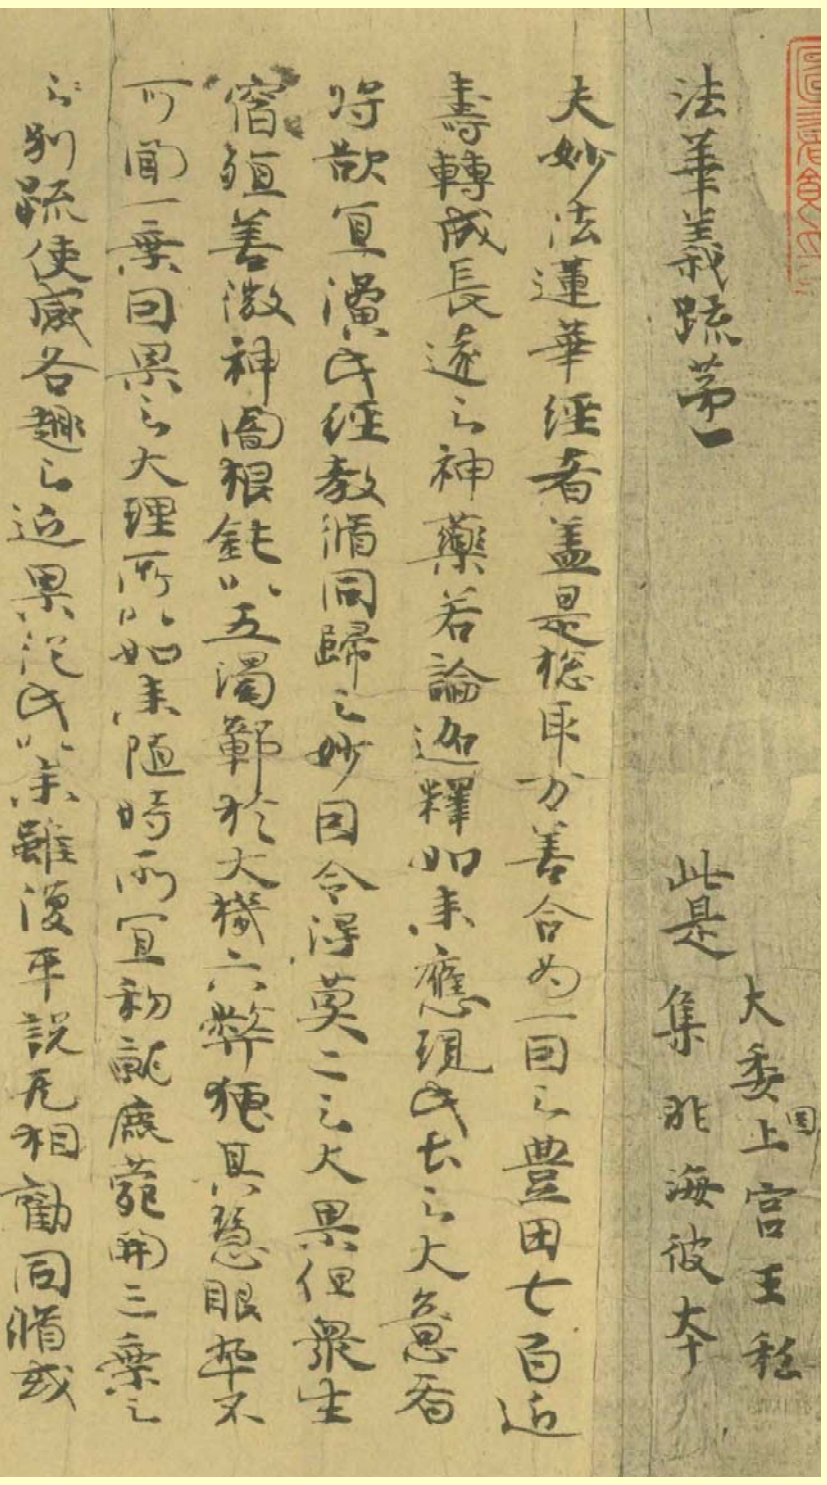 法華義疏第一
此是
大委國上宮王私
集非海彼本
夫妙法蓮華經者蓋是惣取万善合為一因之豊田七百近
壽轉成長遠之神藥若論迦釋如来應現此土之大意者
将欲宜演此經教脩同歸之妙因令得莫二之大果但衆生
宿殖善微神闇根鈍以五濁鄣於大機六弊掩其慧眼卒不
可聞一乗因果之大理所以如来随時所宜初就鹿苑開三乗之
之別疏使感各趣之近果従此以来雖復平説无相勸同脩或